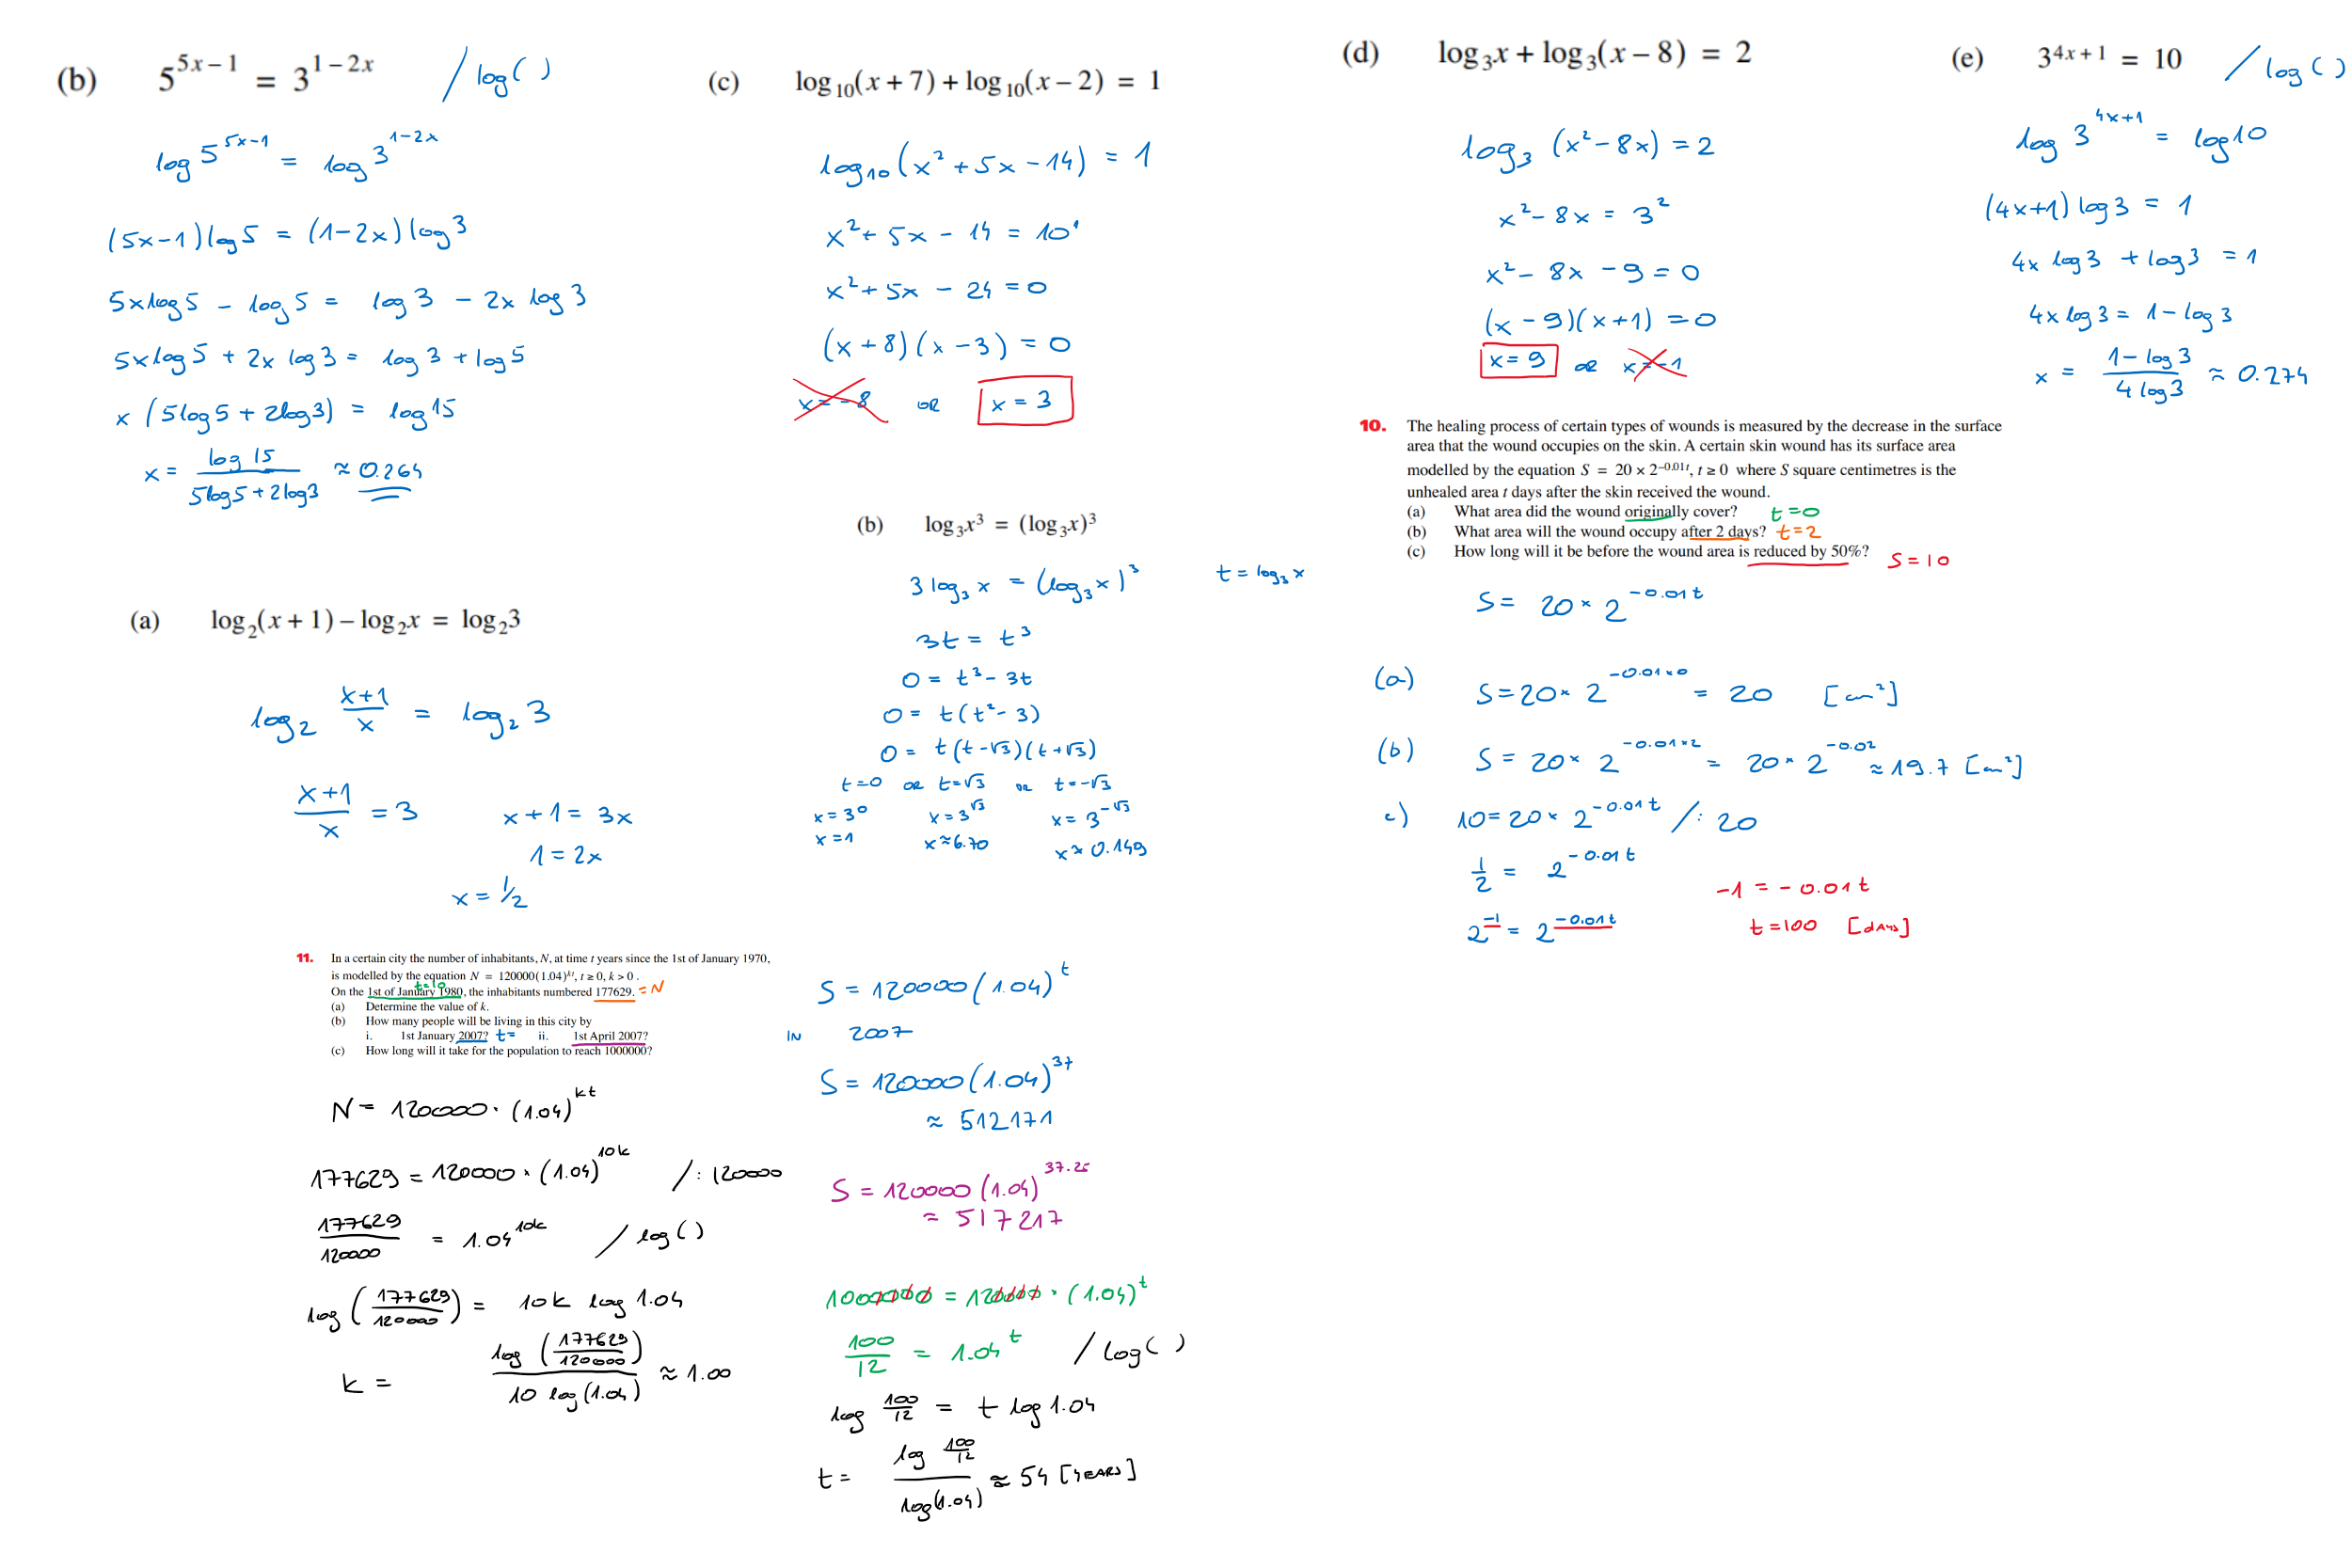 (b) 5^{5x−1} = 3^{1−2x} / log( )
log 5^{5x−1} = log 3^{1−2x}
(5x−1) log 5 = (1−2x) log 3
5x log 5 − log 5 = log 3 − 2x log 3
5x log 5 + 2x log 3 = log 3 + log 5
x (5 log 5 + 2 log 3) = log 15
x = \frac{log 15}{5 log 5 + 2 log 3} ≈ 0.264
(c) log_{10}(x + 7) + log_{10}(x − 2) = 1
log_{10} (x² + 5x − 14) = 1
x² + 5x − 14 = 10¹
x² + 5x − 24 = 0
(x + 8)(x − 3) = 0
x = −8 OR x = 3
(d) log_3 x + log_3(x − 8) = 2
log_3 (x² − 8x) = 2
x² − 8x = 3²
x² − 8x − 9 = 0
(x − 9)(x + 1) = 0
x = 9 OR x = −1
(e) 3^{4x+1} = 10 / log( )
log 3^{4x+1} = log 10
(4x+1) log 3 = 1
4x log 3 + log 3 = 1
4x log 3 = 1 − log 3
x = \frac{1 − log 3}{4 log 3} ≈ 0.274
(a) log_2(x + 1) − log_2 x = log_2 3
log_2 \frac{x+1}{x} = log_2 3
\frac{x+1}{x} = 3 x + 1 = 3x
1 = 2x
x = 1/2
(b) log_3 x³ = (log_3 x)³
3 log_3 x = (log_3 x)³ t = log_3 x
3t = t³
0 = t³ − 3t
0 = t(t² − 3)
0 = t(t − √3)(t + √3)
t = 0 OR t = √3 OR t = −√3
x = 3⁰ x = 3^{√3} x = 3^{−√3}
x = 1 x ≈ 6.70 x ≈ 0.149
10. The healing process of certain types of wounds is measured by the decrease in the surface
area that the wound occupies on the skin. A certain skin wound has its surface area
modelled by the equation S = 20 × 2^{−0.01t}, t ≥ 0 where S square centimetres is the
unhealed area t days after the skin received the wound.
(a) What area did the wound originally cover? t = 0
(b) What area will the wound occupy after 2 days? t = 2
(c) How long will it be before the wound area is reduced by 50%? S = 10
S = 20 × 2^{−0.01t}
(a) S = 20 × 2^{−0.01×0} = 20 [cm²]
(b) S = 20 × 2^{−0.01×2} = 20 × 2^{−0.02} ≈ 19.7 [cm²]
c) 10 = 20 × 2^{−0.01t} /: 20
\frac{1}{2} = 2^{−0.01t}
2^{−1} = 2^{−0.01t}
−1 = −0.01t
t = 100 [DAYS]
11. In a certain city the number of inhabitants, N, at time t years since the 1st of January 1970,
is modelled by the equation N = 120000(1.04)^{kt}, t ≥ 0, k > 0 .
t=10
On the 1st of January 1980, the inhabitants numbered 177629. = N
(a) Determine the value of k.
(b) How many people will be living in this city by
i. 1st January 2007? t = ii. 1st April 2007?
(c) How long will it take for the population to reach 1000000?
N = 120000 · (1.04)^{kt}
177629 = 120000 · (1.04)^{10k} /: 120000
\frac{177629}{120000} = 1.04^{10k} / log( )
log (\frac{177629}{120000}) = 10k log 1.04
k = \frac{log (\frac{177629}{120000})}{10 log (1.04)} ≈ 1.00
S = 120000 (1.04)^t
IN 2007
S = 120000 (1.04)^{37}
≈ 512171
S = 120000 (1.04)^{37.25}
= 517217
1000000 = 120000 · (1.04)^t
\frac{100}{12} = 1.04^t / log( )
log \frac{100}{12} = t log 1.04
t = \frac{log \frac{100}{12}}{log(1.04)} ≈ 54 [YEARS]